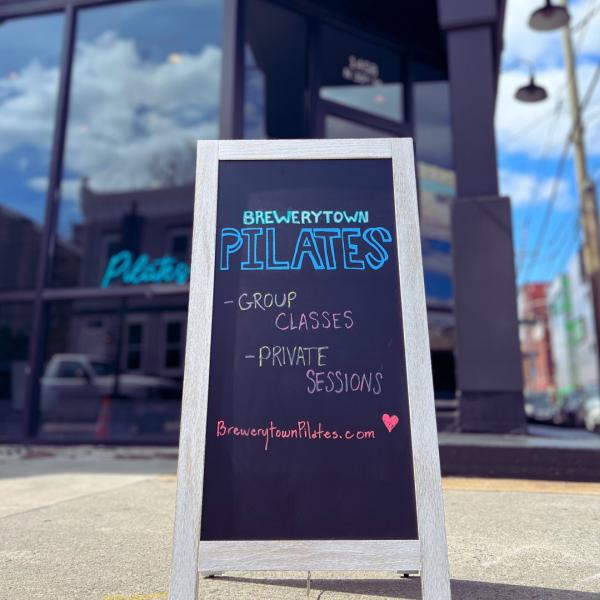 Pilates
BREWERYTOWN
PILATES
- GROUP
CLASSES
- PRIVATE
SESSIONS
BrewerytownPilates.com